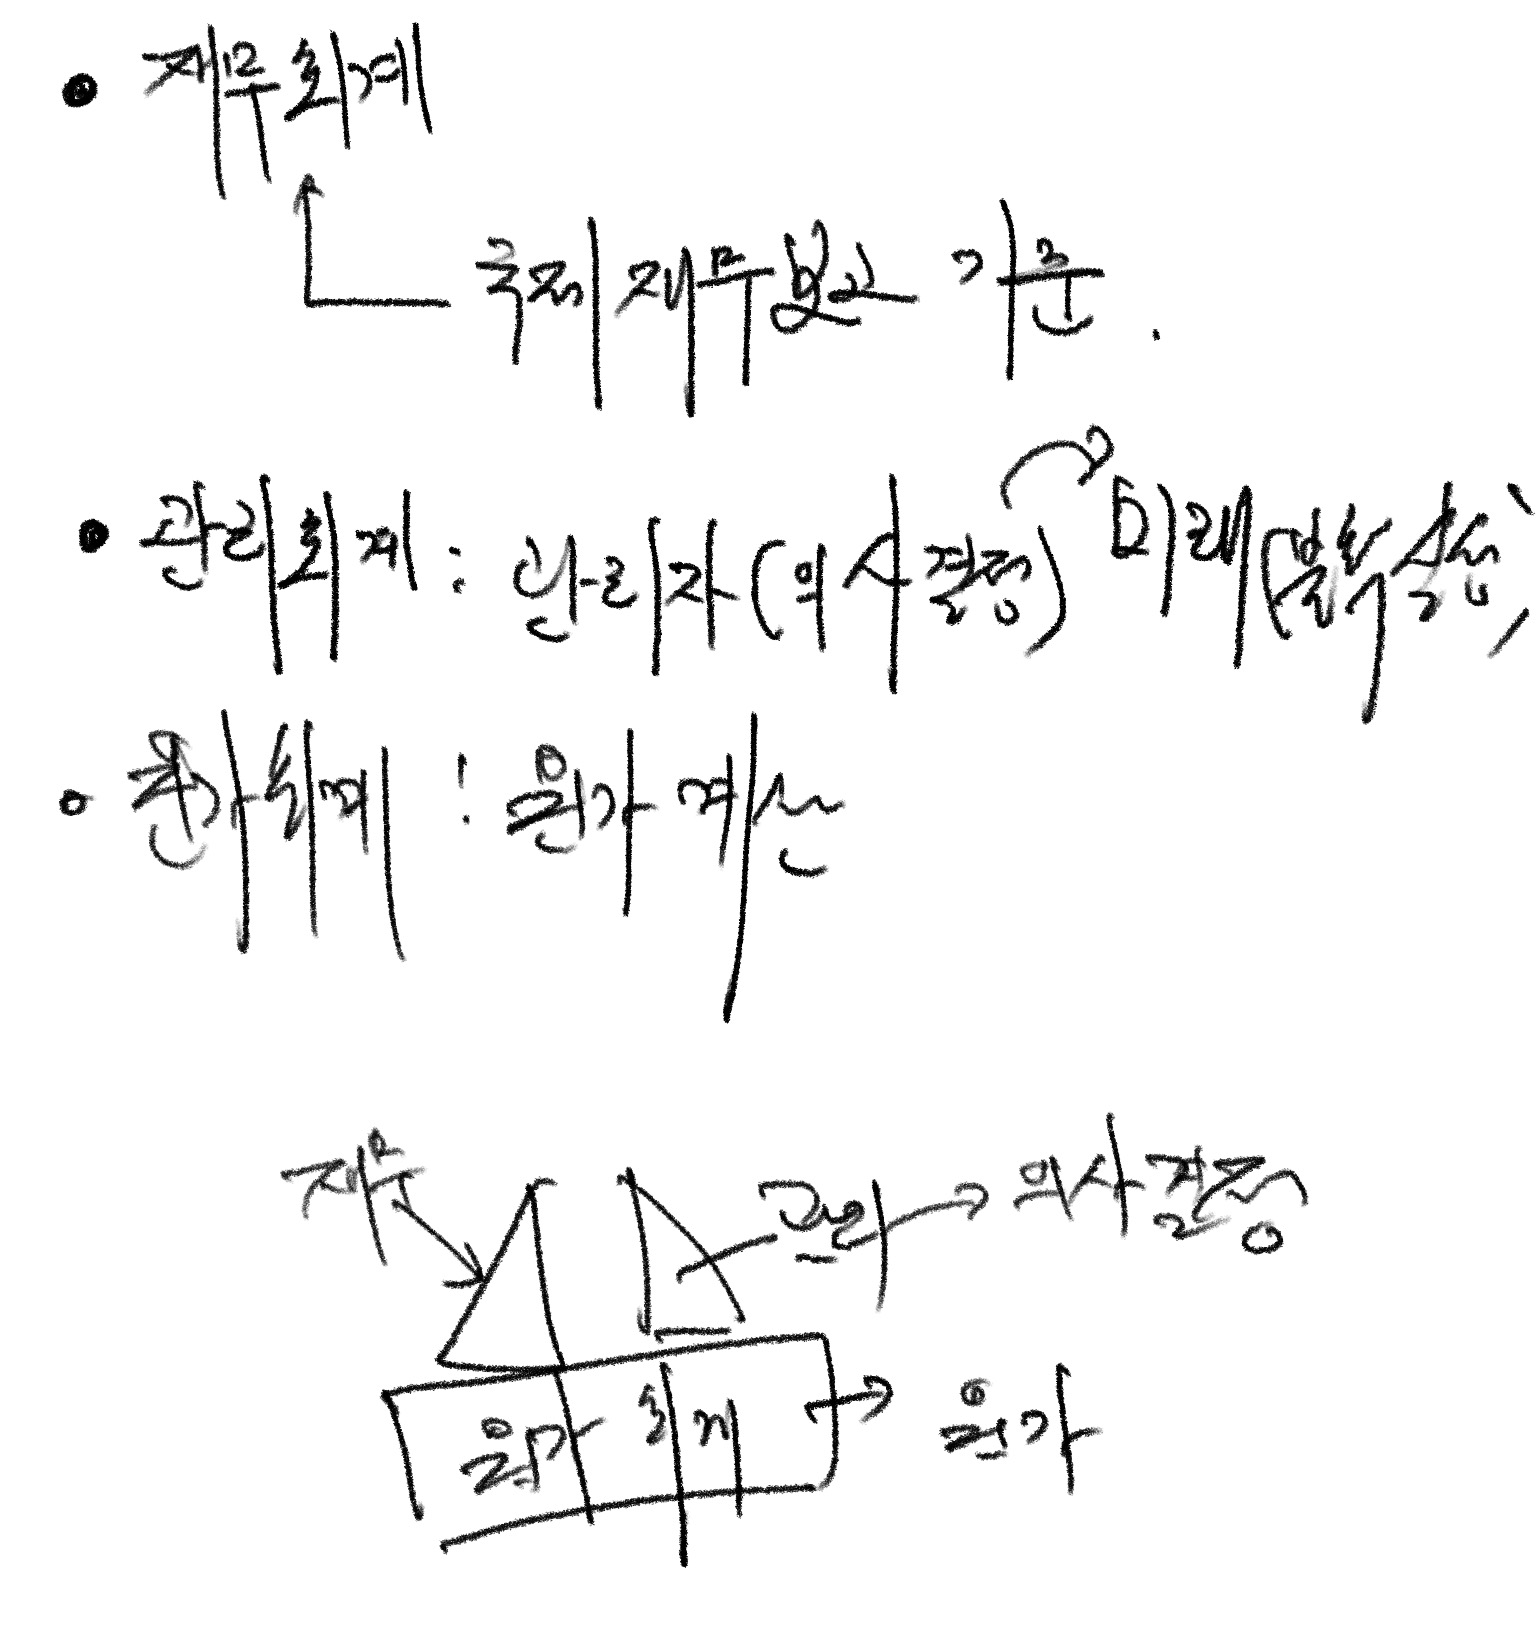 재무회계
국제 재무보고 기준.
관리회계 : 관리자(의사결정) 미래(
원가회계 : 원가 계산
재무
관리 → 의사결정
원가 회계 → 원가